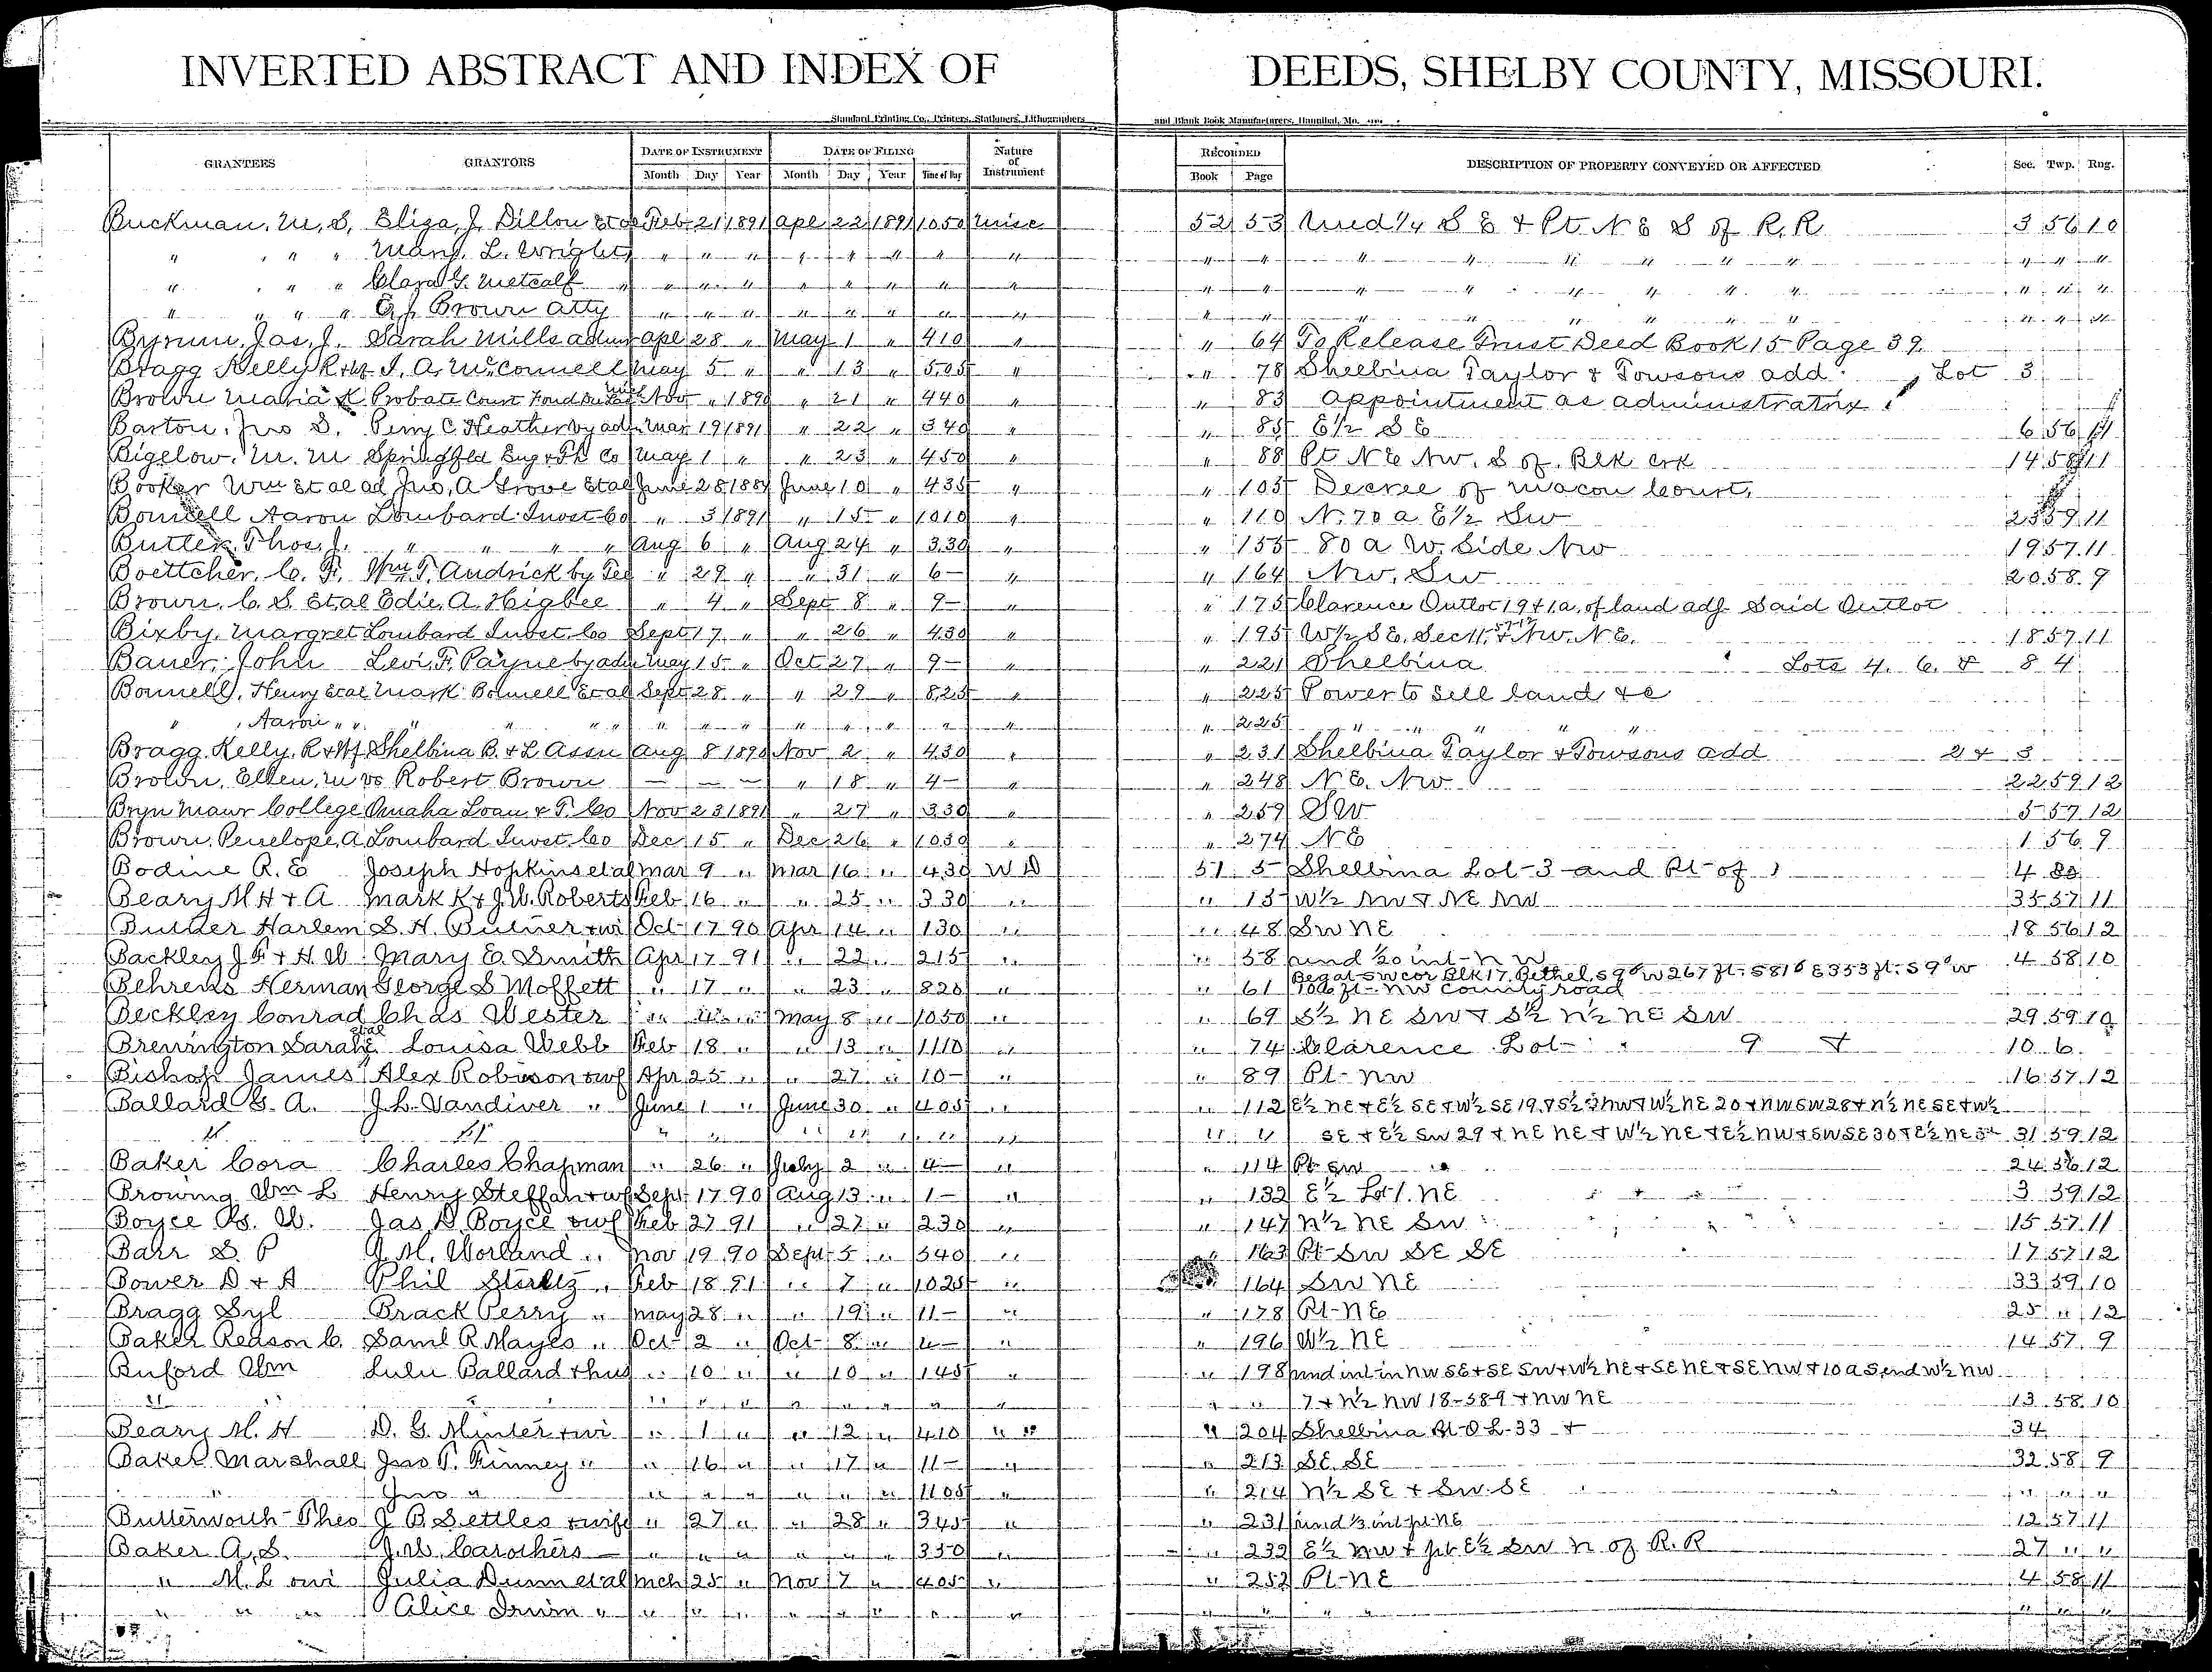 INVERTED ABSTRACT AND INDEX OF DEEDS, SHELBY COUNTY, MISSOURI.
Standard Printing Co., Printers, Stationers, Lithographers and Blank Book Manufacturers, Hannibal, Mo.
GRANTEES GRANTORS DATE OF INSTRUMENT DATE OF FILING Nature of Instrument RECORDED DESCRIPTION OF PROPERTY CONVEYED OR AFFECTED Sec. Twp. Rng.
Month Day Year Month Day Year Time of Day Book Page
Buckman, M, S, Eliza, J, Dillon et al Feb 21 1891 Apl 22 1891 1050 Misc 52 53 Und 1/4 S E + Pt. N E S of R, R 3 56 10
" " " Mary, L. Wright " " " " " " " " " " " " " " " " " " "
" " " Clara G. Metcalf " " " " " " " " " " " " " " " " " " " "
" " " " Brown Atty " " " " " " " " " " " " " " " " " " "
Bynum, Jas, J. Sarah Mills adm Apl 28 " May 1 " 410 " " 64 To Release Trust Deed Book 15 Page 39
Bragg Kelly R + Wf J, A, McConnell May 5 " " 13 " 505 " " 78 Shelbina Taylor & Towsons add Lot 3
Brown Maria K Probate Court Nov " 1890 " 21 " 440 " " 83 Appointment as administratrix
Barton, Jno S. Perry C. Heather by ad Mar 19 1891 " 22 " 340 " " 85 E 1/2 S E 6 56 11
Bigelow, M. M Springfield Eng + Th Co May 1 " " 23 " 450 " " 88 Pt N E Nw, S of Blk crk 14 58 11
Booker Wm et al ad Jno, A Grove et al June 28 1889 June 10 " 435 " " 105 Decree of Macon Court,
Bonnell Aaron Lombard Invst Co " 3 1891 " 15 " 1010 " " 110 N. 70 a E 1/2 Sw 23 59 11
Butler, Thos, J. " " " " Aug 6 " Aug 24 " 330 " " 155 80 a W. Side Nw 19 57 11
Boettcher, C. F. Wm T. Audrick by Tee " 29 " " 31 " 6- " " 164 Nw, Sw 20 58 9
Brown, C. S et al Edie, A. Higbee " 4 " Sept 8 " 9- " 175 Clarence Outlot 19 + 1 a, of land adj said Outlot
Bixby, Margret Lombard Invst. Co Sept 17 " " 26 " 430 " " 195 W 1/2 SE, Sec 11, 57-12 + Nw. N E. 18 57 11
Bauer, John Levi, F. Payne by adm May 15 " Oct 27 " 9- " " 221 Shelbina Lots 4, 6, & 8 4
Bonnell, Henry et al Mark Bonnell et al Sept 28 " " 29 " 825 " " 225 Power to sell land &c
" , Aaron " " " " " " " " " " " " " " " " 225 " " " " "
Bragg, Kelly, R + Wf Shelbina B. + L Assn Aug 8 1890 Nov 2 " 430 " " 231 Shelbina Taylor & Towsons add 2 + 3
Brown, Ellen, M vs Robert Brown — — — " 18 " 4- " " 248 N E. Nw 22 59 12
Bryn Mawr College Omaha Loan & T. Co Nov 23 1891 " 27 " 330 " " 259 SW 5 57 12
Brown, Penelope, A Lombard Invst. Co Dec 15 " Dec 26 " 1030 " " 274 NE 1 56 9
Bodine R. E Joseph Hopkins et al Mar 9 " Mar 16 " 430 W D 51 5 Shelbina Lot-3-and Pt-of 1 4 80
Beary M H + A Mark K + J. W. Roberts Feb 16 " " 25 " 330 " " 15 W 1/2 NW + NE NW 35 57 11
Butler Harlem S. H. Bulner + wi Oct 17 90 Apr 14 " 130 " " 48 SW NE 18 56 12
Backley J F + H W Mary E. Smith Apr 17 91 " 22 " 215 " " 58 und 1/20 int- N W 4 58 10
Behrens Herman George S Moffett " 17 " " 23 " 820 " " 61 Beg at SW cor Blk 17, Bethel, S 9° W 267 ft; S 81° E 353 ft; S 9° W
ft- NW County road
Beckley Conrad Chas Wester " " " May 8 " 1050 " " 69 S 1/2 NE SW + S 1/2 N 1/2 NE SW 29 59 10
Brewington Sarah et al Louisa Webb Feb 18 " " 13 " 1110 " " 74 Clarence Lot- 9 + 10 6
Bishop James Alex Robison + wf Apr 25 " " 27 " 10- " " 89 Pt- NW 16 57 12
Ballard G. A. J. L. Vandiver " June 1 " June 30 " 405 " " 112 E 1/2 NE + E 1/2 SE + W 1/2 SE 19, + S 1/2 NW + W 1/2 NE 20 + NW SW 28 + N 1/2 NE SE + W 1/2
" " " " " " " " " " " SE + E 1/2 SW 29 + NE NE + W 1/2 NE + E 1/2 NW + SW SE 30 + E 1/2 NE 31 59 12
Baker Cora Charles Chapman " 26 " July 2 " 4- " 114 Pt SW 24 56 12
Browing Wm L Henry Steffan + wf Sept 17 90 Aug 13 " 1- " " 132 E 1/2 Lot 1. NE 3 59 12
Boyce Jas D Boyce + wf Feb 27 91 " 27 " 230 " " 147 N 1/2 NE SW 15 57 11
Barr S P J. M. Worland " Nov 19 90 Sept 5 " 340 " " 163 Pt- SW SE SE 17 57 12
Bower D + A Phil Feb 18 91 " 7 " 1025 " 164 SW NE 33 59 10
Bragg Syl Brack Perry " May 28 " " 19 " 11- " " 178 Pt- NE 25 " 12
Baker Reason C. Saml R Mayes " Oct 2 " Oct 8 " " " 196 W 1/2 NE 14 57 9
Buford Wm Lulu Ballard + hus " 10 " " 10 " 145 " " 198 und int in NW SE + SE SW + W 1/2 NE + SE NE + SE NW + 10 a S end W 1/2 NW
" " " " " " " " " " " " 7 + N 1/2 NW 18-58 9 + NW NE 13 58 10
Beary M. H D. G. Minter + wi " 1 " " 12 " 410 " " " 204 Shelbina Pt-O-L-33 + 34
Baker Marshall Jno T. Finney " " 16 " " 17 " 11- " " 213 SE. SE 32 58 9
" Jno " " " " " " " 1105 " " 214 N 1/2 SE + SW. SE " " "
Butterworth Theo J B Settles + wife " 27 " " 28 " 345 " " 231 und 1/3 int pt NE 12 57 11
Baker A, S. J. W. Carothers " " " " " " 350 " " 232 E 1/2 NW + pt E 1/2 SW N of R. R 27 " "
" M. L + wi Julia Dunn et al Mch 25 " Nov 7 " 405 " " 252 Pt- NE 4 58 11
" " " Alice " " " " " " " " " " " " " " " " "